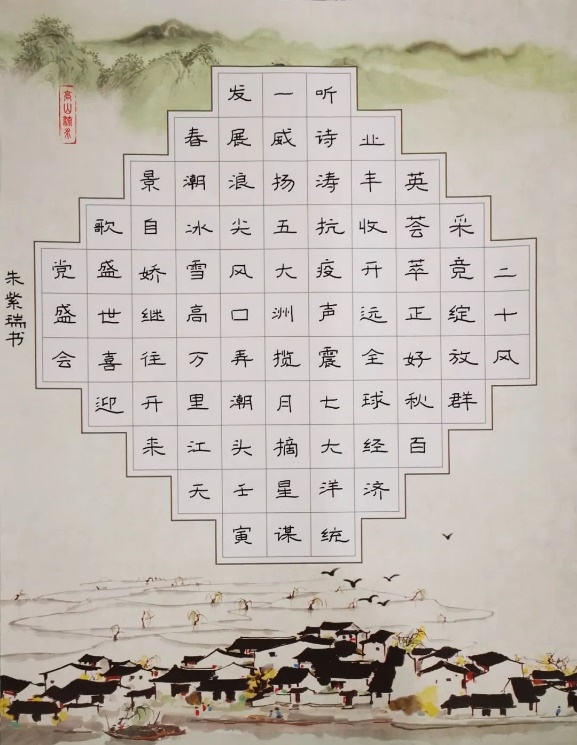 二十风
采竞绽放群
英荟萃正好秋百
业丰收开远全球经济
听诗涛抗疫声震七大洋统
一威扬五大洲揽月摘星谋
发展浪尖风口弄潮头壬寅
春潮冰雪高万里江天
景自娇继往开来
歌盛世喜迎
党盛会
朱紫瑞书
高山流水